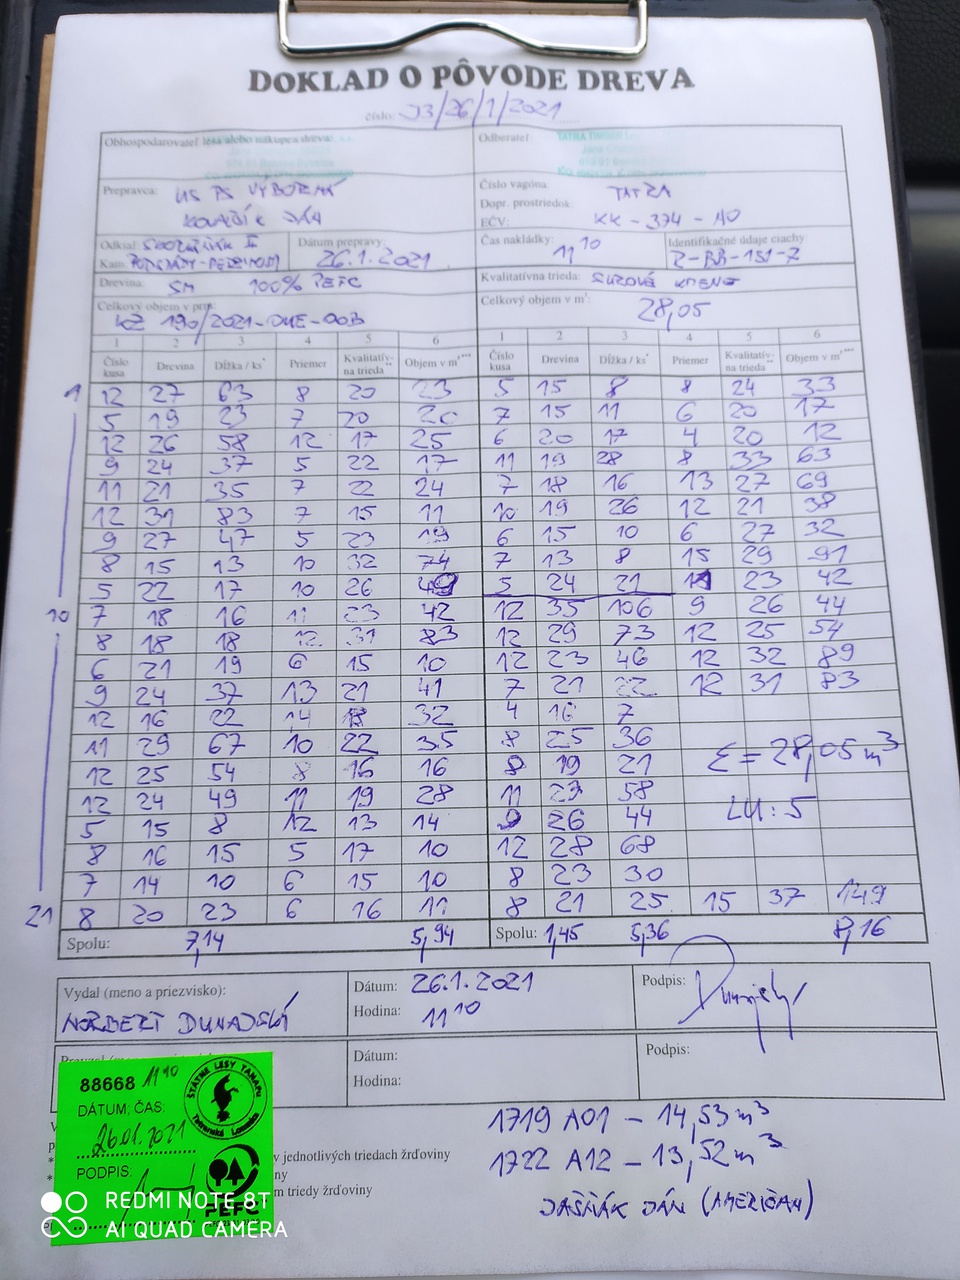 DOKLAD O PÔVODE DREVA
číslo: J3/26/1/2021
Obhospodarovateľ lesa alebo nákupca dreva:
Odberateľ
TATRA TIMBER
Prepravca: US PS VÝBORNÁ
KOVALČÍK JÁN
Číslo vagóna: TATRA
Dopr. prostriedok:
EČV: KK - 374 - AO
Odkiaľ
Kam:
Dátum prepravy: 26.1.2021
Čas nakládky: 11 10
Identifikačné údaje ciachy
Z-BB-151-7
Drevina: SM 100% PEFC
Kvalitatívna trieda: SUROVÉ KMENE
Celkový objem v prm:
KZ 190/2021-DUE-OOB
Celkový objem v m³: 28,05
1 2 3 4 5 6 1 2 3 4 5 6
Číslo kusa Drevina Dĺžka / ks* Priemer Kvalitatív-na trieda** Objem v m³*** Číslo kusa Drevina Dĺžka / ks* Priemer Kvalitatív-na trieda** Objem v m³***
1 12 27 63 8 20 23 5 15 8 8 24 33
5 19 23 7 20 20 7 15 11 6 20 17
12 26 58 12 17 25 6 20 17 4 20 12
9 24 37 5 22 17 11 19 28 8 33 63
11 21 35 7 22 24 7 18 16 13 27 69
12 31 83 7 15 11 10 19 26 12 21 38
9 27 47 5 23 19 6 15 10 6 27 32
8 15 13 10 32 74 7 13 8 15 29 91
5 22 17 10 26 49 5 24 21 11 23 42
10 7 18 16 11 23 42 12 35 106 9 26 44
8 18 18 12 31 83 12 29 73 12 25 54
6 21 19 6 15 10 12 23 46 12 32 89
9 24 37 13 21 41 7 21 22 12 31 83
12 16 22 14 18 32 4 16 7
11 29 67 10 22 35 8 25 36
Σ = 28,05 m³
12 25 54 8 16 16 8 19 21
12 24 49 11 19 28 11 27 58
LU: 5
5 15 8 12 13 14 9 26 44
8 16 15 5 17 10 12 28 68
7 14 10 6 15 10 8 23 30
21 8 20 23 6 16 11 8 21 25 15 37 149
Spolu: 7,14 5,94 Spolu: 1,45 5,36 8,16
Vydal (meno a priezvisko):
NORBERT DUNAJSKÝ
Dátum: 26.1.2021
Hodina: 11 10
Podpis:
Dátum:
Hodina:
Podpis:
88668 11 10
DÁTUM; ČAS:
26.01.2021
PODPIS:
ŠTÁTNE LESY TANAPU
Tatranská Lomnica
PEFC
1719 A01 - 14,53 m³
1722 A12 - 13,52 m³
JAŠŇÁK JÁN (AMERIČAN)
v jednotlivých triedach žrďoviny
ny
m triedy žrďoviny
REDMI NOTE 8T
AI QUAD CAMERA